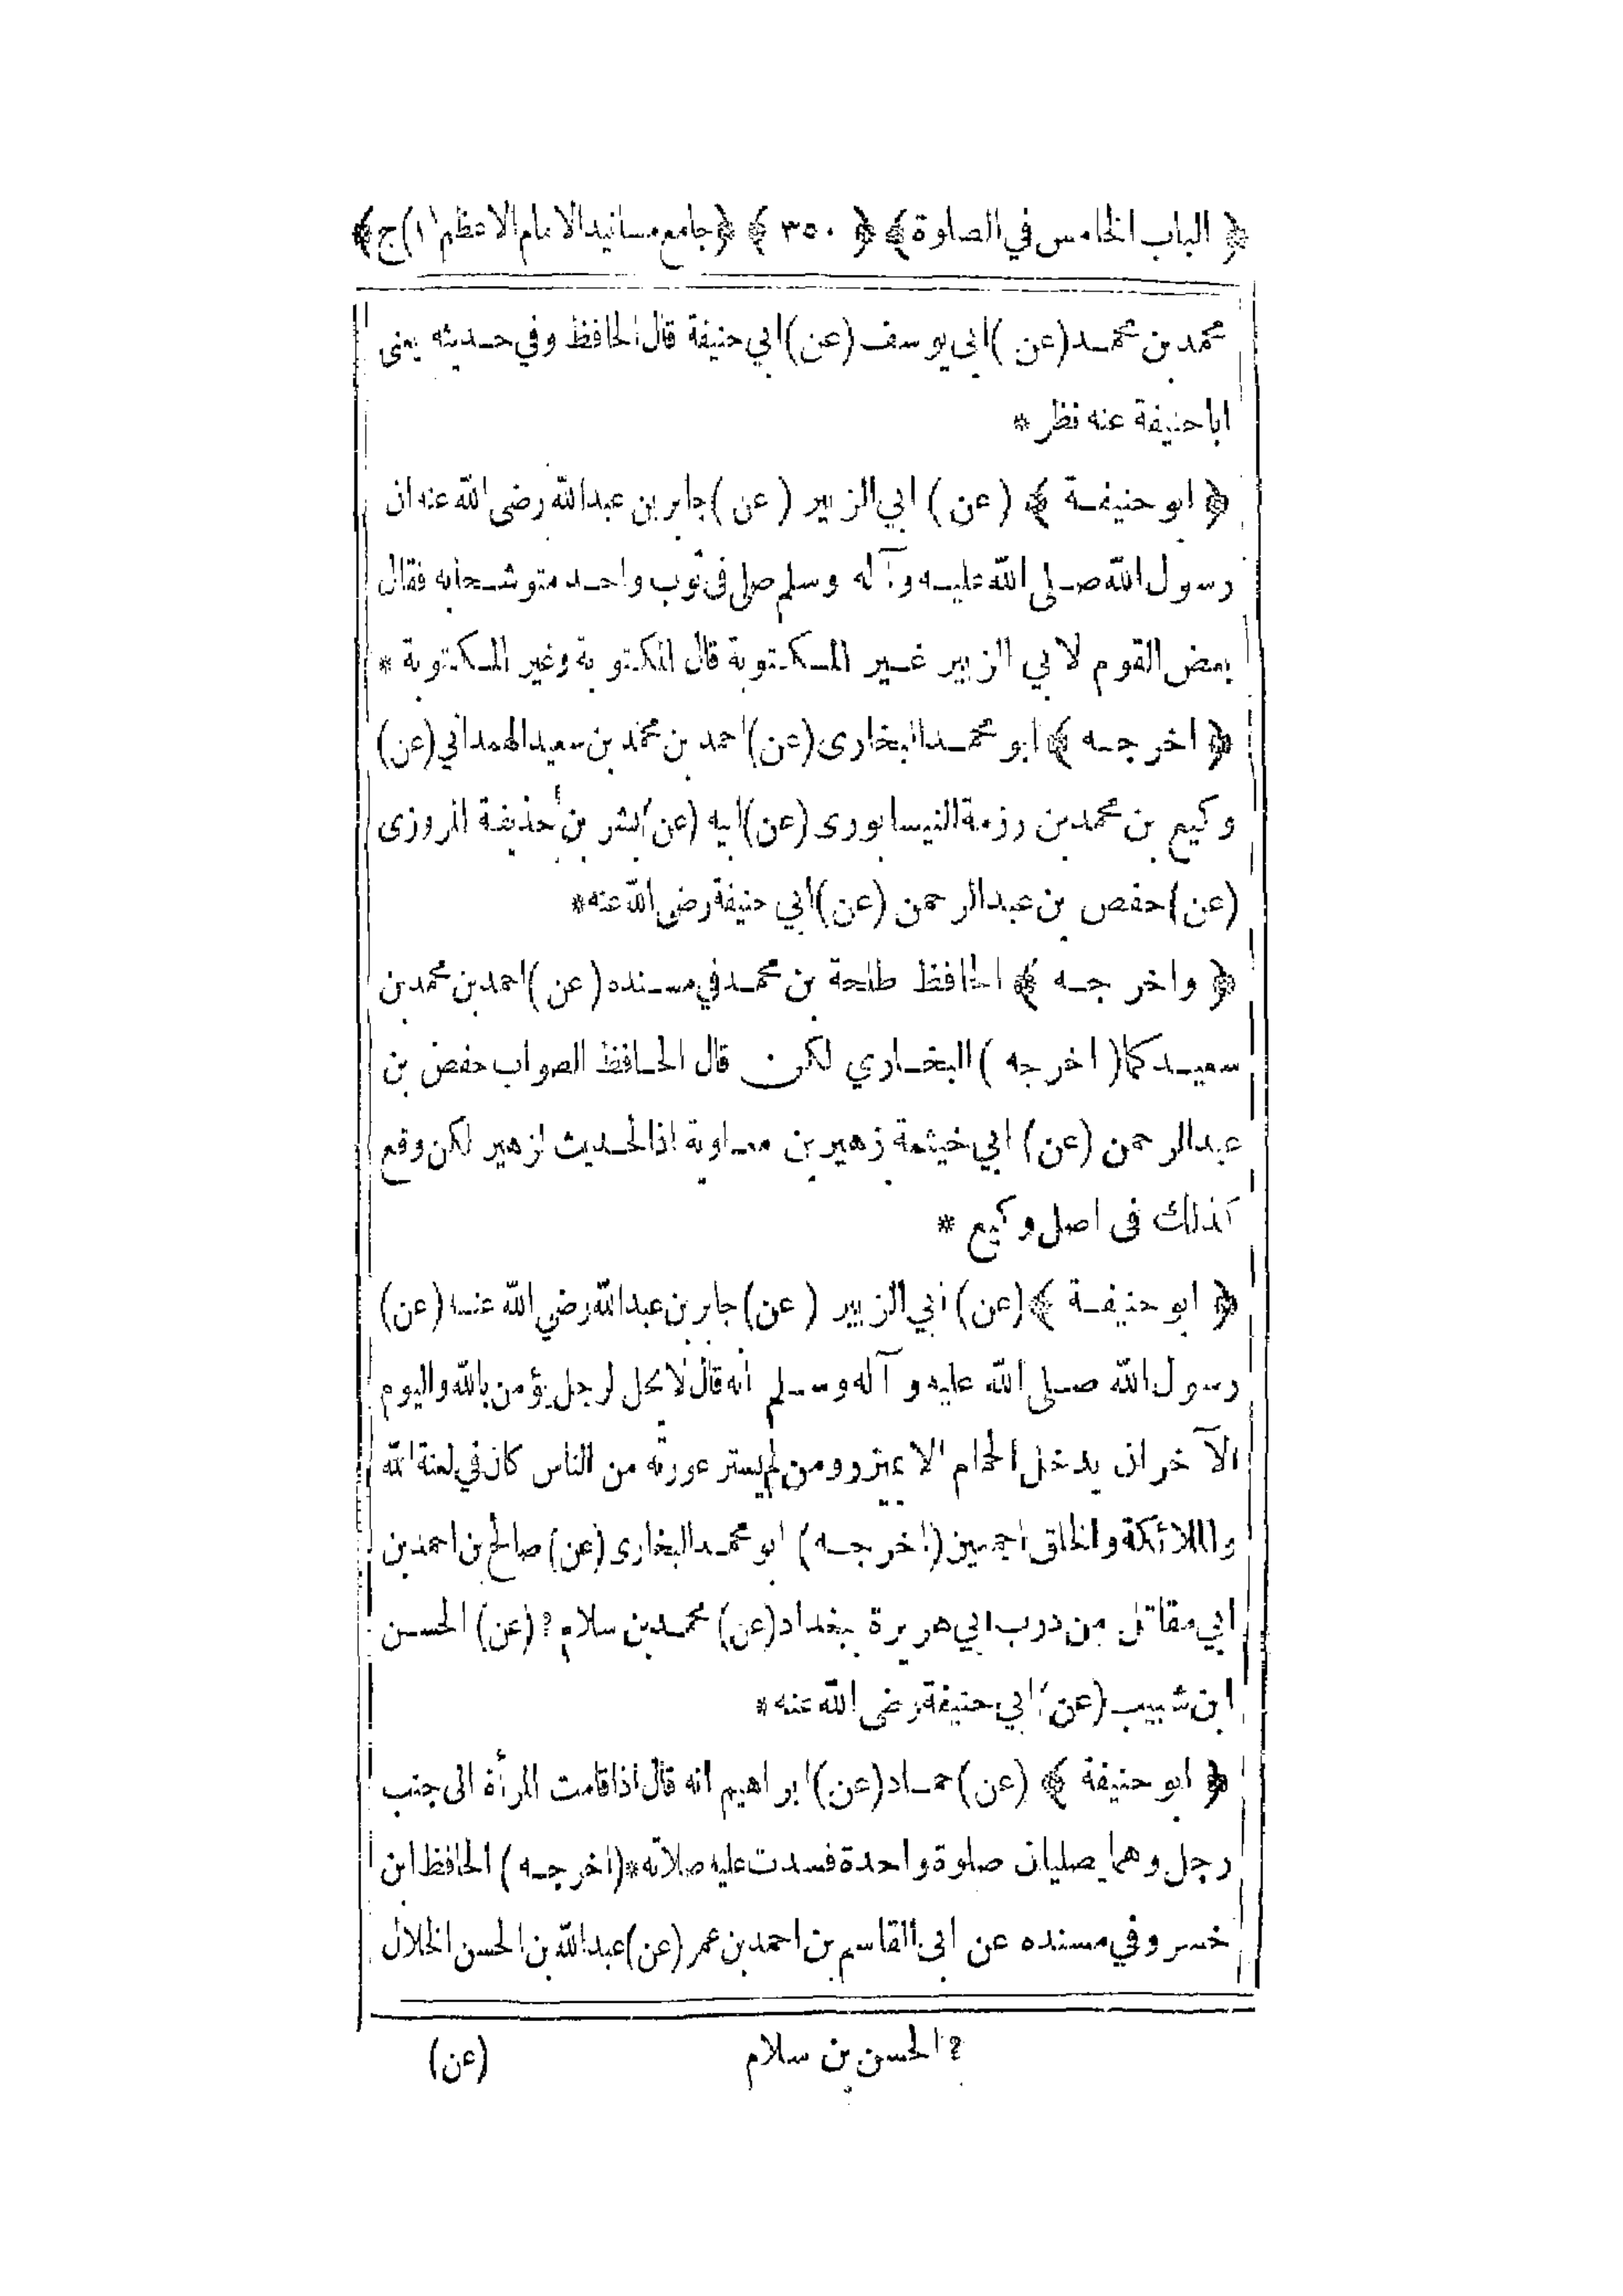 ﴿ الباب الخامس في الصلوة ﴾ ﴿ ٣٥٠ ﴾ ﴿ جامع مسانيد الامام الاعظم (١) ج ﴾
محمد بن محمد (عن) ابى يوسف (عن) ابي حنيفة قال الحافظ وفي حديثه يعنى
اباحنيفة عنه نظر *
﴿ ابو حنيفة ﴾ (عن) ابي الزبير (عن) جابر بن عبدالله رضى الله عنه ان
رسول الله صلى الله عليه وآله وسلم صلى فى ثوب واحد متوشحابه فقال
بعض القوم لابي الزبير غير المكتوبة قال المكتوبة وغير المكتوبة *
﴿ اخرجه ﴾ ابو محمد البخارى (عن) احمد بن محمد بن سعيد الهمداني (عن)
وكيع بن محمد بن رزمة النيسابورى (عن) ابيه (عن) بشر بن حذيفة المروزى
(عن) حفص بن عبدالرحمن (عن) ابي حنيفة رضى الله عنه *
﴿ واخرجه ﴾ الحافظ طلحة بن محمد في مسنده (عن) احمد بن محمد بن
سعيد كما (اخرجه) البخاري لكن قال الحافظ الصواب حفص بن
عبدالرحمن (عن) ابي خيثمة زهير بن معاوية اذالحديث لزهير لكن وقع
كذلك فى اصل وكيع *
﴿ ابو حنيفة ﴾ (عن) ابي الزبير (عن) جابر بن عبدالله رضي الله عنه (عن)
رسول الله صلى الله عليه وآله وسلم انه قال لا يحل لرجل يؤمن بالله واليوم
الآخر ان يدخل الحمام الا بمئزر ومن لم يستر عورته من الناس كان في لعنة الله
والملائكة والخلق اجمعين (اخرجه) ابو محمد البخارى (عن) صالح بن احمد بن
ابي مقاتل من درب ابي هريرة ببغداد (عن) محمد بن سلام ? (عن) الحسن
ابن شبيب (عن) ابي حنيفة رضى الله عنه *
﴿ ابو حنيفة ﴾ (عن) حماد (عن) ابراهيم انه قال اذا قامت المرأة الى جنب
رجل وهما يصليان صلوة واحدة فسدت عليه صلاته * (اخرجه) الحافظ ابن
خسرو في مسنده عن ابى القاسم بن احمد بن عمر (عن) عبدالله بن الحسن الخلال
? الحسن بن سلام (عن)